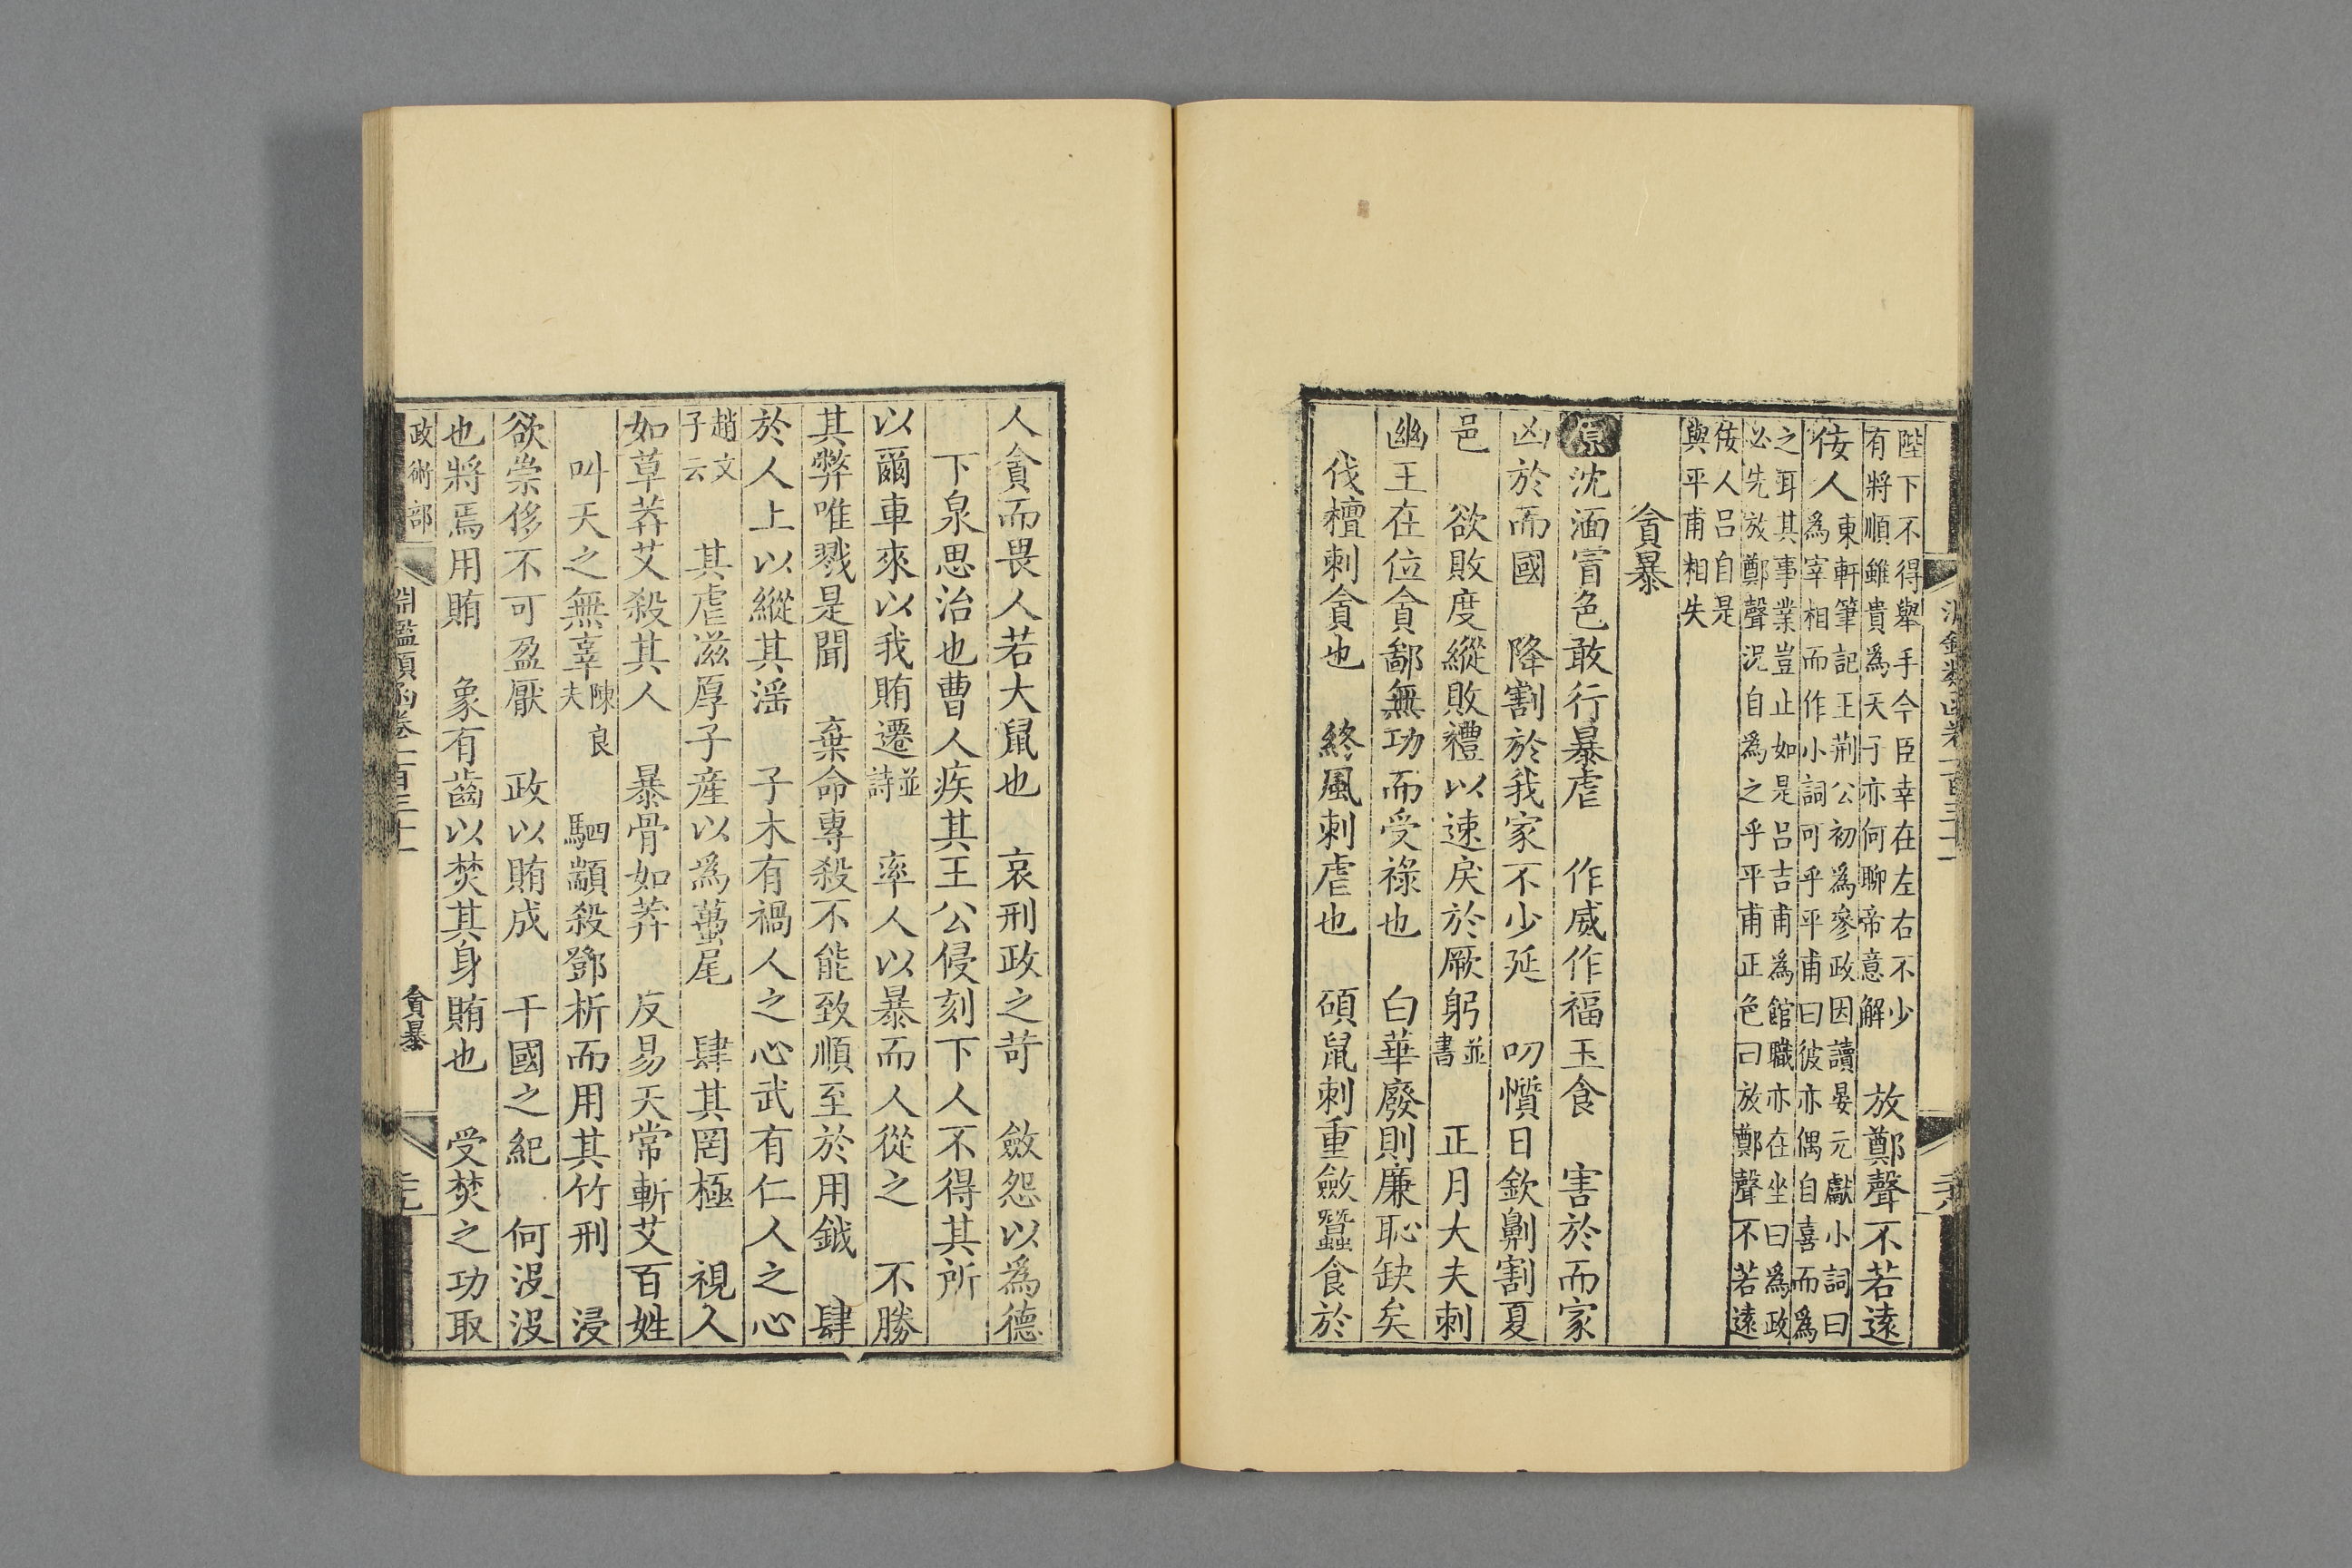 陛下不得舉手今臣幸在左右不少
有將順雖貴爲天子亦何聊帝意解
放鄭聲不若遠
佞人
東軒筆記王荆公初爲參政因讀晏元獻小詞曰
爲宰相而作小詞可乎平甫曰彼亦偶自喜而爲
之耳其事業豈止如是吕吉甫爲館職亦在坐曰爲政
必先放鄭聲況自爲之乎平甫正色曰放鄭聲不若遠
佞人吕自是
與平甫相失
貪暴
原沈湎冒色敢行暴虐 作威作福玉食 害於而家
凶於而國 降割於我家不少延 叨懫日欽劓割夏
邑 欲敗度縱敗禮以速戾於厥躬並書 正月大夫刺
幽王在位貪鄙無功而受祿也 白華廢則廉恥缺矣
伐檀刺貪也 終風刺虐也 碩鼠刺重斂蠶食於
人貪而畏人若大鼠也 哀刑政之苛 斂怨以爲德
下泉思治也曹人疾其王公侵刻下人不得其所
以爾車來以我賄遷並詩 率人以暴而人從之 不勝
其弊唯戮是聞 棄命專殺不能致順至於用鉞 肆
於人上以縱其滛 子木有禍人之心武有仁人之心
趙文子云 其虐滋厚子產以爲蠆尾 肆其罔極 視人
如草莽艾殺其人 暴骨如莽 反易天常斬艾百姓
叫天之無辜陳良夫 駟顓殺鄧析而用其竹刑 浸
欲崇侈不可盈厭 政以賄成 干國之紀 何沒沒
也將焉用賄 象有齒以焚其身賄也 受焚之功取
政術部 淵鑑類函卷一百三十一 貪暴 三九